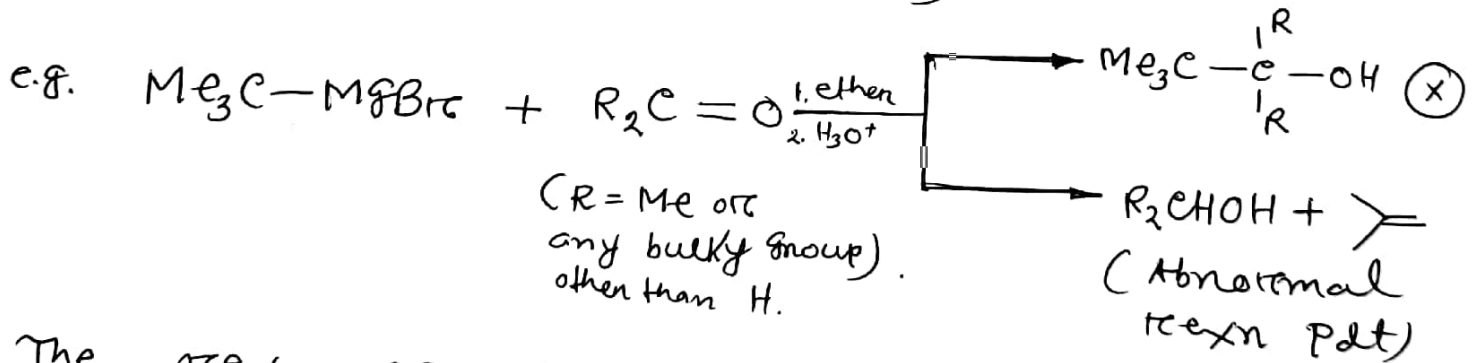 e.g. Me₃C—MgBr + R₂C=O 1. ether
2. H₃O⁺
Me₃C—C—OH (X)
R
R
(R = Me or
any bulky group)
other than H.
R₂CHOH +
(Abnormal
rexn Pdt)
The